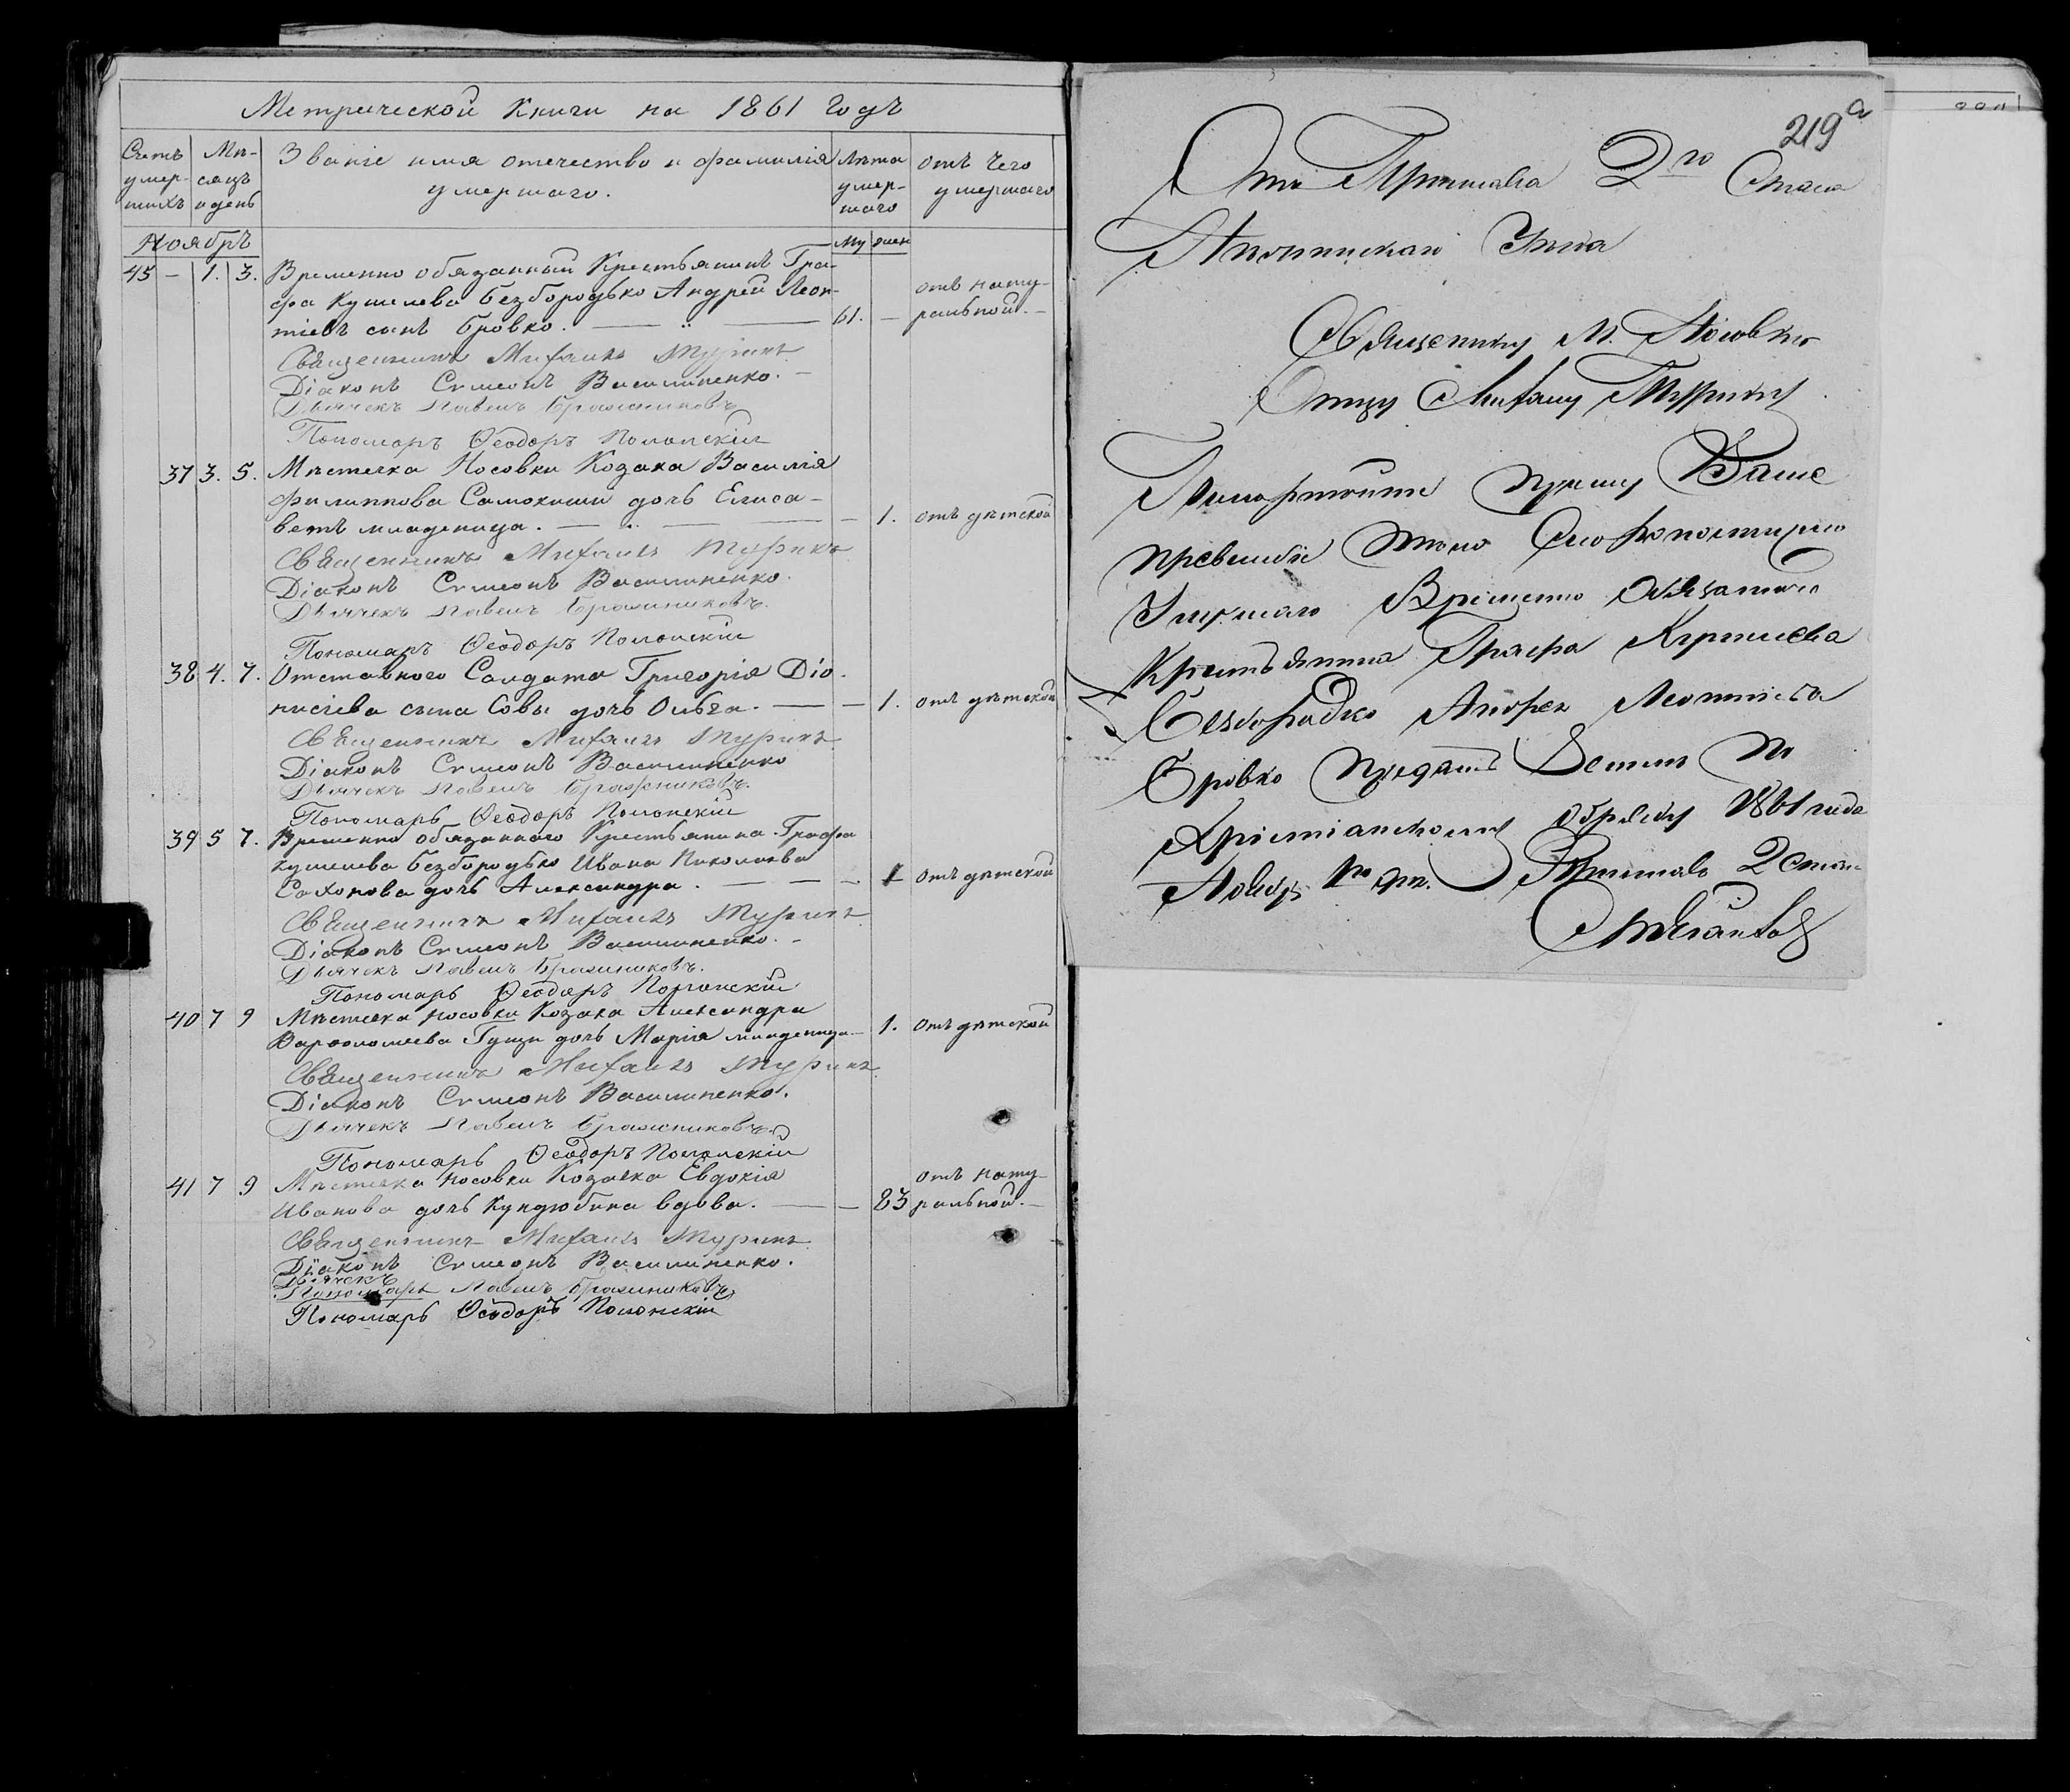 Метрической Книги на 1861 годъ
Счетъ умер-шихъ
Мѣ-сяцъ и день
Званіе имя отечество и фамилія умершаго.
Лѣта умер-шаго
отъ чего умершаго
Ноябрь
Му жен
45 – 1. 3. Временно обязанный Крестьянинъ Гра-
фа Кушелева Безбородько Андрей Леон-
тіевъ сынъ Бровко. 61. – отъ нату-
ральной. –
Священникъ Михаилъ Туринъ
Діаконъ Симеонъ Василиненко. –
Дьячекъ Павелъ Бражниковъ
Пономарь Ѳеодоръ Полонскій
37 3. 5. Мѣстечка Носовки Козака Василія
Филиппова Самокиши дочь Елиса-
ветъ младеница. – 1. отъ дѣтской
Священникъ Михаилъ Туринъ
Діаконъ Симеонъ Василиненко.
Дьячекъ Павелъ Бражниковъ.
Пономарь Ѳеодоръ Полонскій
38 4. 7. Отставного Солдата Григорія Діо-
нисіева сына Совы дочь Ольга. – 1. отъ дѣтской
Священникъ Михаилъ Туринъ
Діаконъ Симеонъ Василиненко
Дьячекъ Павелъ Бражниковъ.
Пономарь Ѳеодоръ Полонскій
39 5 7. Временно обязанного Крестьянина Графа
Кушелева Безбородько Ивана Николаева
Сахонова дочь Александра. – 1 отъ дѣтской
Священникъ Михаилъ Туринъ
Діаконъ Симеонъ Василиненко. –
Дьячекъ Павелъ Бражниковъ.
Пономарь Ѳеодоръ Полонскій
40 7 9 Мѣстечка Носовки Козака Александра
Варѳоломеева Гущи дочь Марія младеница – 1. отъ дѣтской
Священникъ Михаилъ Туринъ
Діаконъ Симеонъ Василиненко.
Дьячекъ Павелъ Бражниковъ
Пономарь Ѳеодоръ Полонскій
41 7 9 Мѣстечка Носовки Козачка Евдокія
Иванова дочь Кундюбина вдова. – 83 отъ нату-
ральной. –
Священникъ Михаилъ Туринъ
Діаконъ Симеонъ Василиненко.
Дьячекъ
Пономарь Павелъ Бражниковъ
Пономарь Ѳеодоръ Полонскій
219 а
Отъ Пристава 2го Стана
Уѣзда
Священнику М. Носовки
Отцу Михаилу Турину
прошу Ваше
тѣло
Умершаго Временно Обязанаго
Крестьянина Графа Кушелева
Безбородко Андрея Леонтіева
Бровко Предать Земли По
Христіанскому обряду 1861 года
Ноябр. 1го дн. Приставъ 2 Стан